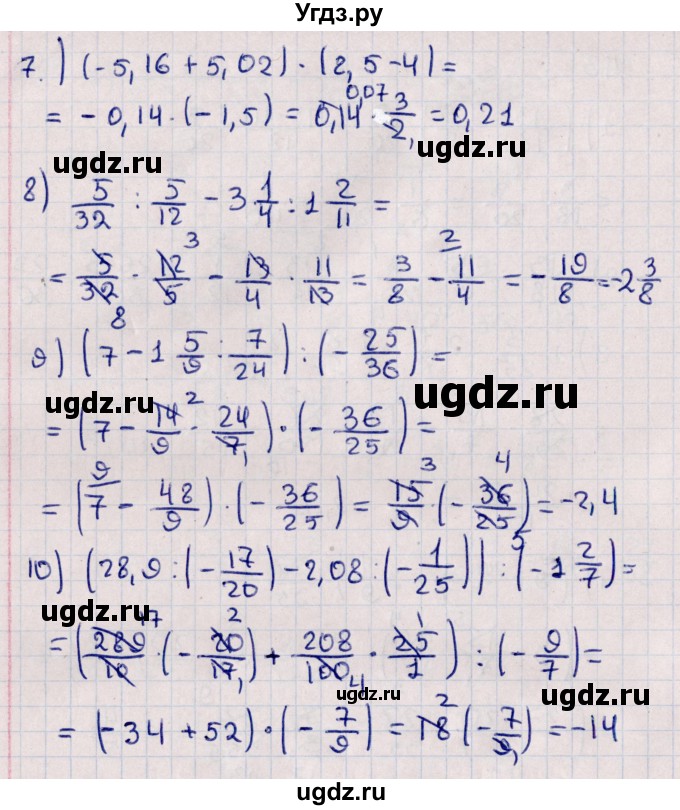 Угдз.ру
7.) (-5,16 + 5,02) · (2,5-4) =
= -0,14 · (-1,5) = 0,14 0,07 · 3/2 1 = 0,21
ugdz.ru ugdz.ru
8) 5/32 : 5/12 - 3 1/4 : 1 2/11 =
= 5/32 8 · 12 3/5 - 13/4 · 11/13 = 3/8 - 11/4 2 = -19/8 = -2 3/8
9) (7 - 1 5/9 : 7/24) : (-25/36) =
ugdz.ru ugdz.ru
= (7 - 14 2/9 · 24/7 1) · (-36/25) =
= (7 9 - 48/9) · (-36/25) = 15 3/9 · (-36 4/25 5) = -2,4
10) (28,9 : (-17/20) - 2,08 : (-1/25)) : (-1 2/7) =
ugdz.ru ugdz.ru
= (289 17/10 · (-20 2/17 1) + 208/100 4 · 25 1/1) : (-9/7) =
ugdz.ru
= (-34 + 52) · (-7/9) = 18 2 (-7/9 1) = -14
ugdz.ru ugdz.ru